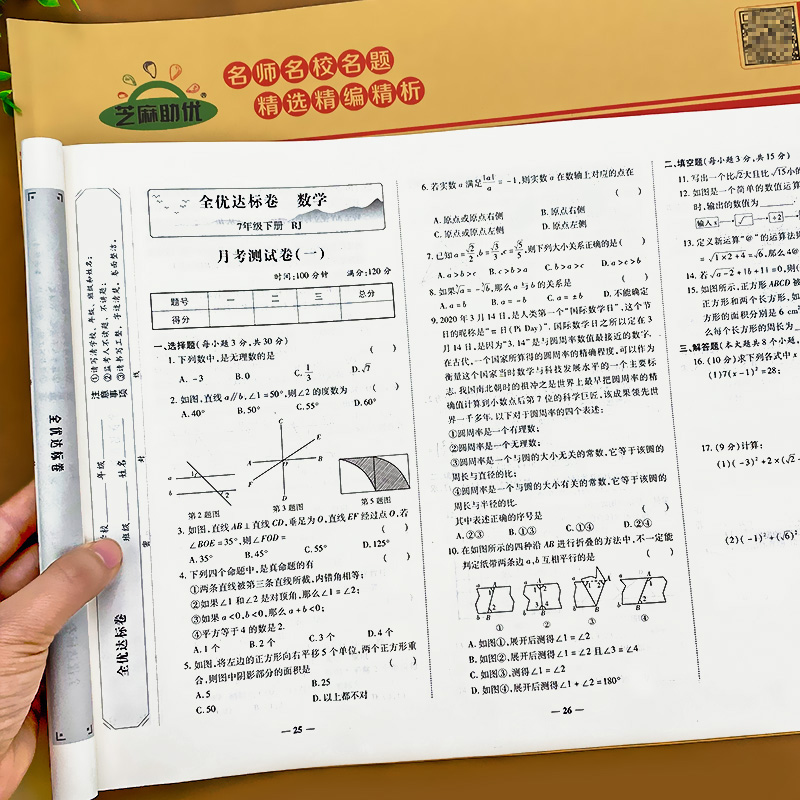 芝麻助优
名师名校名题
精选精编精析
全优达标卷 数学
7年级下册 RJ
月考测试卷(一)
时间:100分钟 满分:120分
题号 一 二 三 总分
得分
注意事项
①请写清学校、年级、班级和姓名;
②监考人不读题、不讲题;
③请书写工整、字迹清楚、卷面整洁。
全优达标卷
年级
姓名
班级
线
封
密
全优达标卷
一、选择题(每小题3分,共30分)
1. 下列数中,是无理数的是 ( )
A. -3 B. 0 C. 1/3 D. √7
2. 如图,直线a∥b,∠1=50°,则∠2的度数为 ( )
A. 40° B. 50° C. 55° D. 60°
第2题图 第3题图 第5题图
3. 如图,直线AB⊥直线CD,垂足为O,直线EF经过点O,若
∠BOE=35°,则∠FOD= ( )
A. 35° B. 45° C. 55° D. 125°
4. 下列四个命题中,是真命题的有 ( )
①两条直线被第三条直线所截,内错角相等;
②如果∠1和∠2是对顶角,那么∠1=∠2;
③如果a<0,b<0,那么a+b<0;
④平方等于4的数是2.
A. 1个 B. 2个 C. 3个 D. 4个
5. 如图,将左边的正方形向右平移5个单位,两个正方形重
合,则图中阴影部分的面积是 ( )
A. 5 B. 25
C. 50 D. 以上都不对
— 25 —
6. 若实数a满足|a|/a=-1,则实数a在数轴上对应的点在
( )
A. 原点或原点右侧 B. 原点右侧
C. 原点或原点左侧 D. 原点左侧
7. 已知a=√2/2,b=√3/3,c=√5/5,则下列大小关系正确的是( )
A. a>b>c B. c>b>a C. b>a>c D. a>c>b
8. 如果∛a=-∛b,那么a与b的关系是 ( )
A. a=b B. a=-b C. a=±b D. 不能确定
9. 2020年3月14日,是人类第一个“国际数学日”,这个节
日的昵称是“π日(Pi Day)”. 国际数学日之所以定在3
月14日,是因为“3.14”是与圆周率数值最接近的数字.
在古代,一个国家所算得的圆周率的精确程度,可以作为
衡量这个国家当时数学与科技发展水平的一个主要标
志. 我国南北朝时的祖冲之是世界上最早把圆周率的精
确值计算到小数点后第7位的科学巨匠,该成果领先世
界一千多年. 以下对于圆周率的四个表述:
①圆周率是一个有理数;
②圆周率是一个无理数;
③圆周率是一个与圆的大小无关的常数,它等于该圆的
周长与直径的比;
④圆周率是一个与圆的大小有关的常数,它等于该圆的
周长与半径的比.
其中表述正确的序号是 ( )
A. ②③ B. ①③ C. ①④ D. ②④
10. 在如图所示的四种沿AB进行折叠的方法中,不一定能
判定纸带两条边a,b互相平行的是 ( )
① ② ③ ④
A. 如图①,展开后测得∠1=∠2
B. 如图②,展开后测得∠1=∠2且∠3=∠4
C. 如图③,测得∠1=∠2
D. 如图④,展开后测得∠1+∠2=180°
— 26 —
二、填空题(每小题3分,共15分)
11. 写出一个比√2大且比√15小的
12. 如图是一个简单的数值运算
时,输出的数值为
输入x √ ÷2
13. 定义新运算“@”的运算法则
=√(1×2+4)=√6,那么4@
14. 若√(a-2)+|b+1|=0,则(
15. 如图所示,正方形ABCD被
正方形和两个长方形,如
方形的面积分别是6 cm²
么每个长方形的周长为
三、解答题(本大题共8个小题,
16. (10分)求下列各式中x
(1)7(x-1)²=28;
17. (9分)计算:
(1)(-3)²+2×(√2-
(2)(-1)²+(√6)²